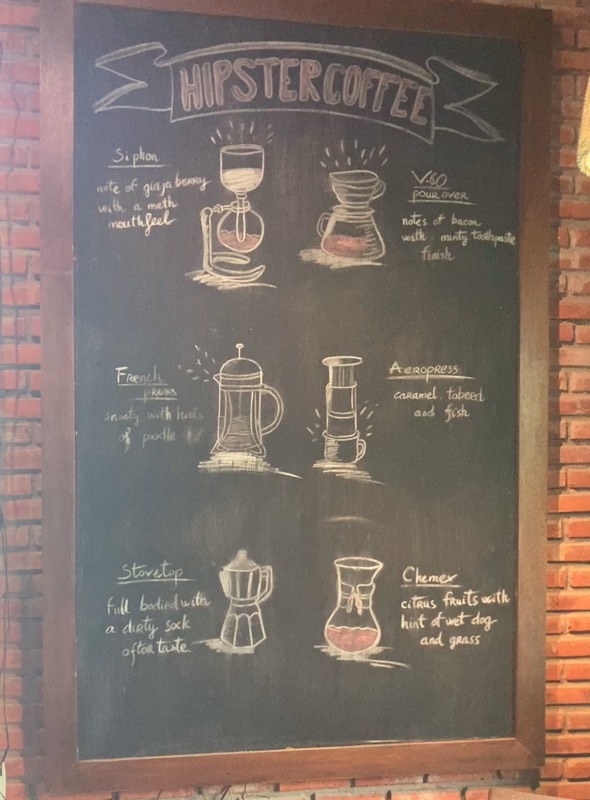 HIPSTER COFFEE
Siphon
note of giaja berry
with a meth
mouthfeel
V-60
POUR OVER
notes of bacon
with minty toothpaste
finish
French
press
snooty with hints
of poodle
AEROPRESS
caramel tobeed
and fish
Stovetop
full bodied with
a dirty sock
after taste.
Chemex
citrus fruits with
hint of wet dog
and grass